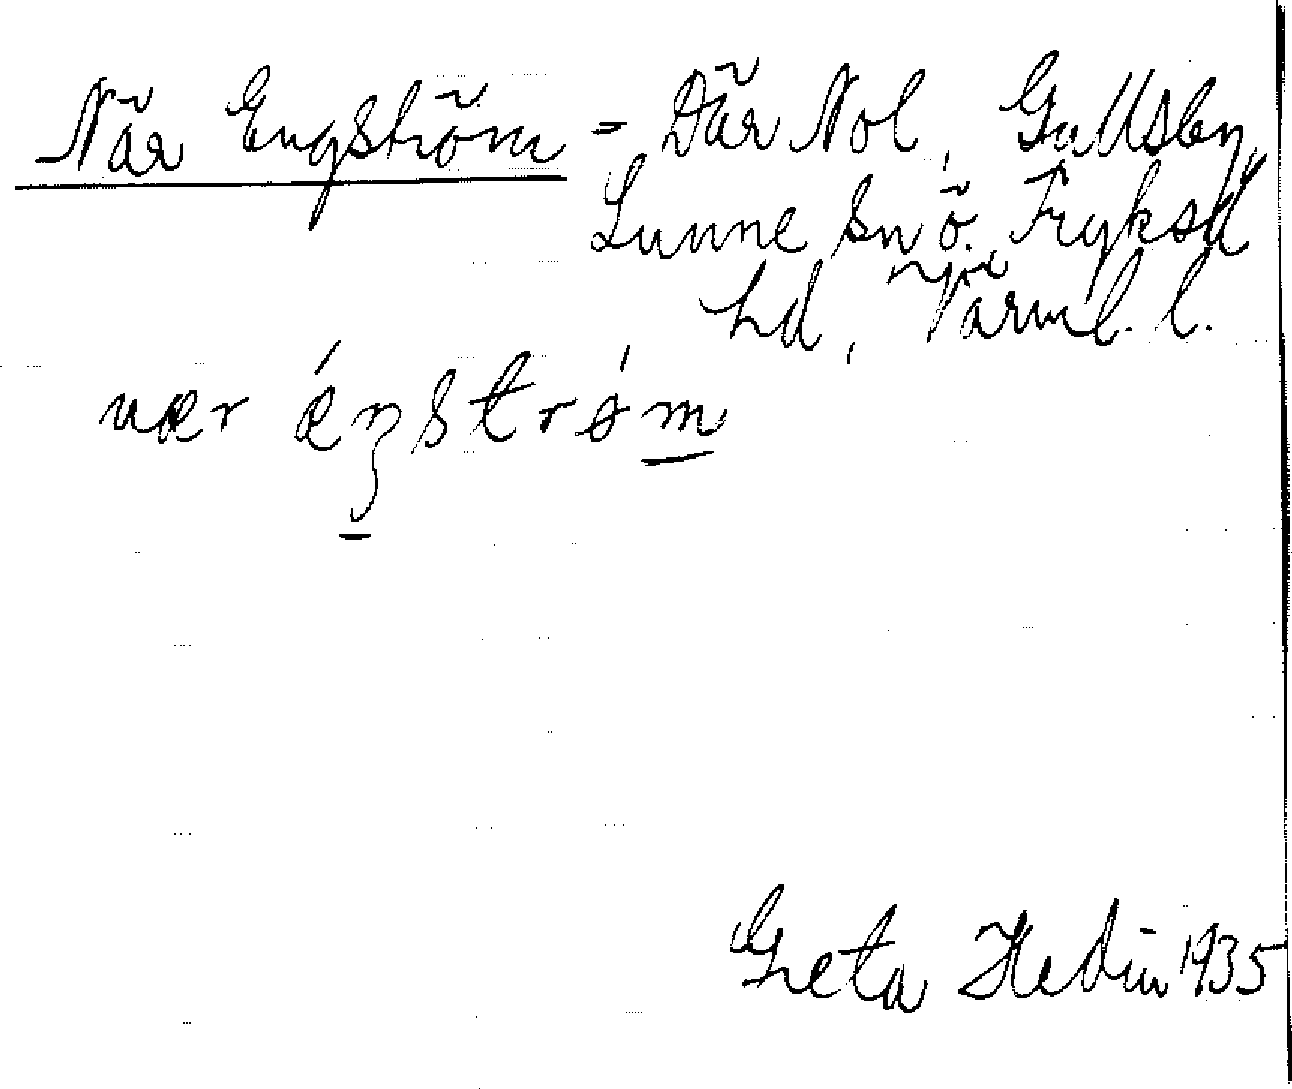 När Engström = Där Nol, Gullsby,
Lunne sn ö. Fryksd.
hd, Värml. l.
nær ǽŋstrǿm
Greta Hedin 1935